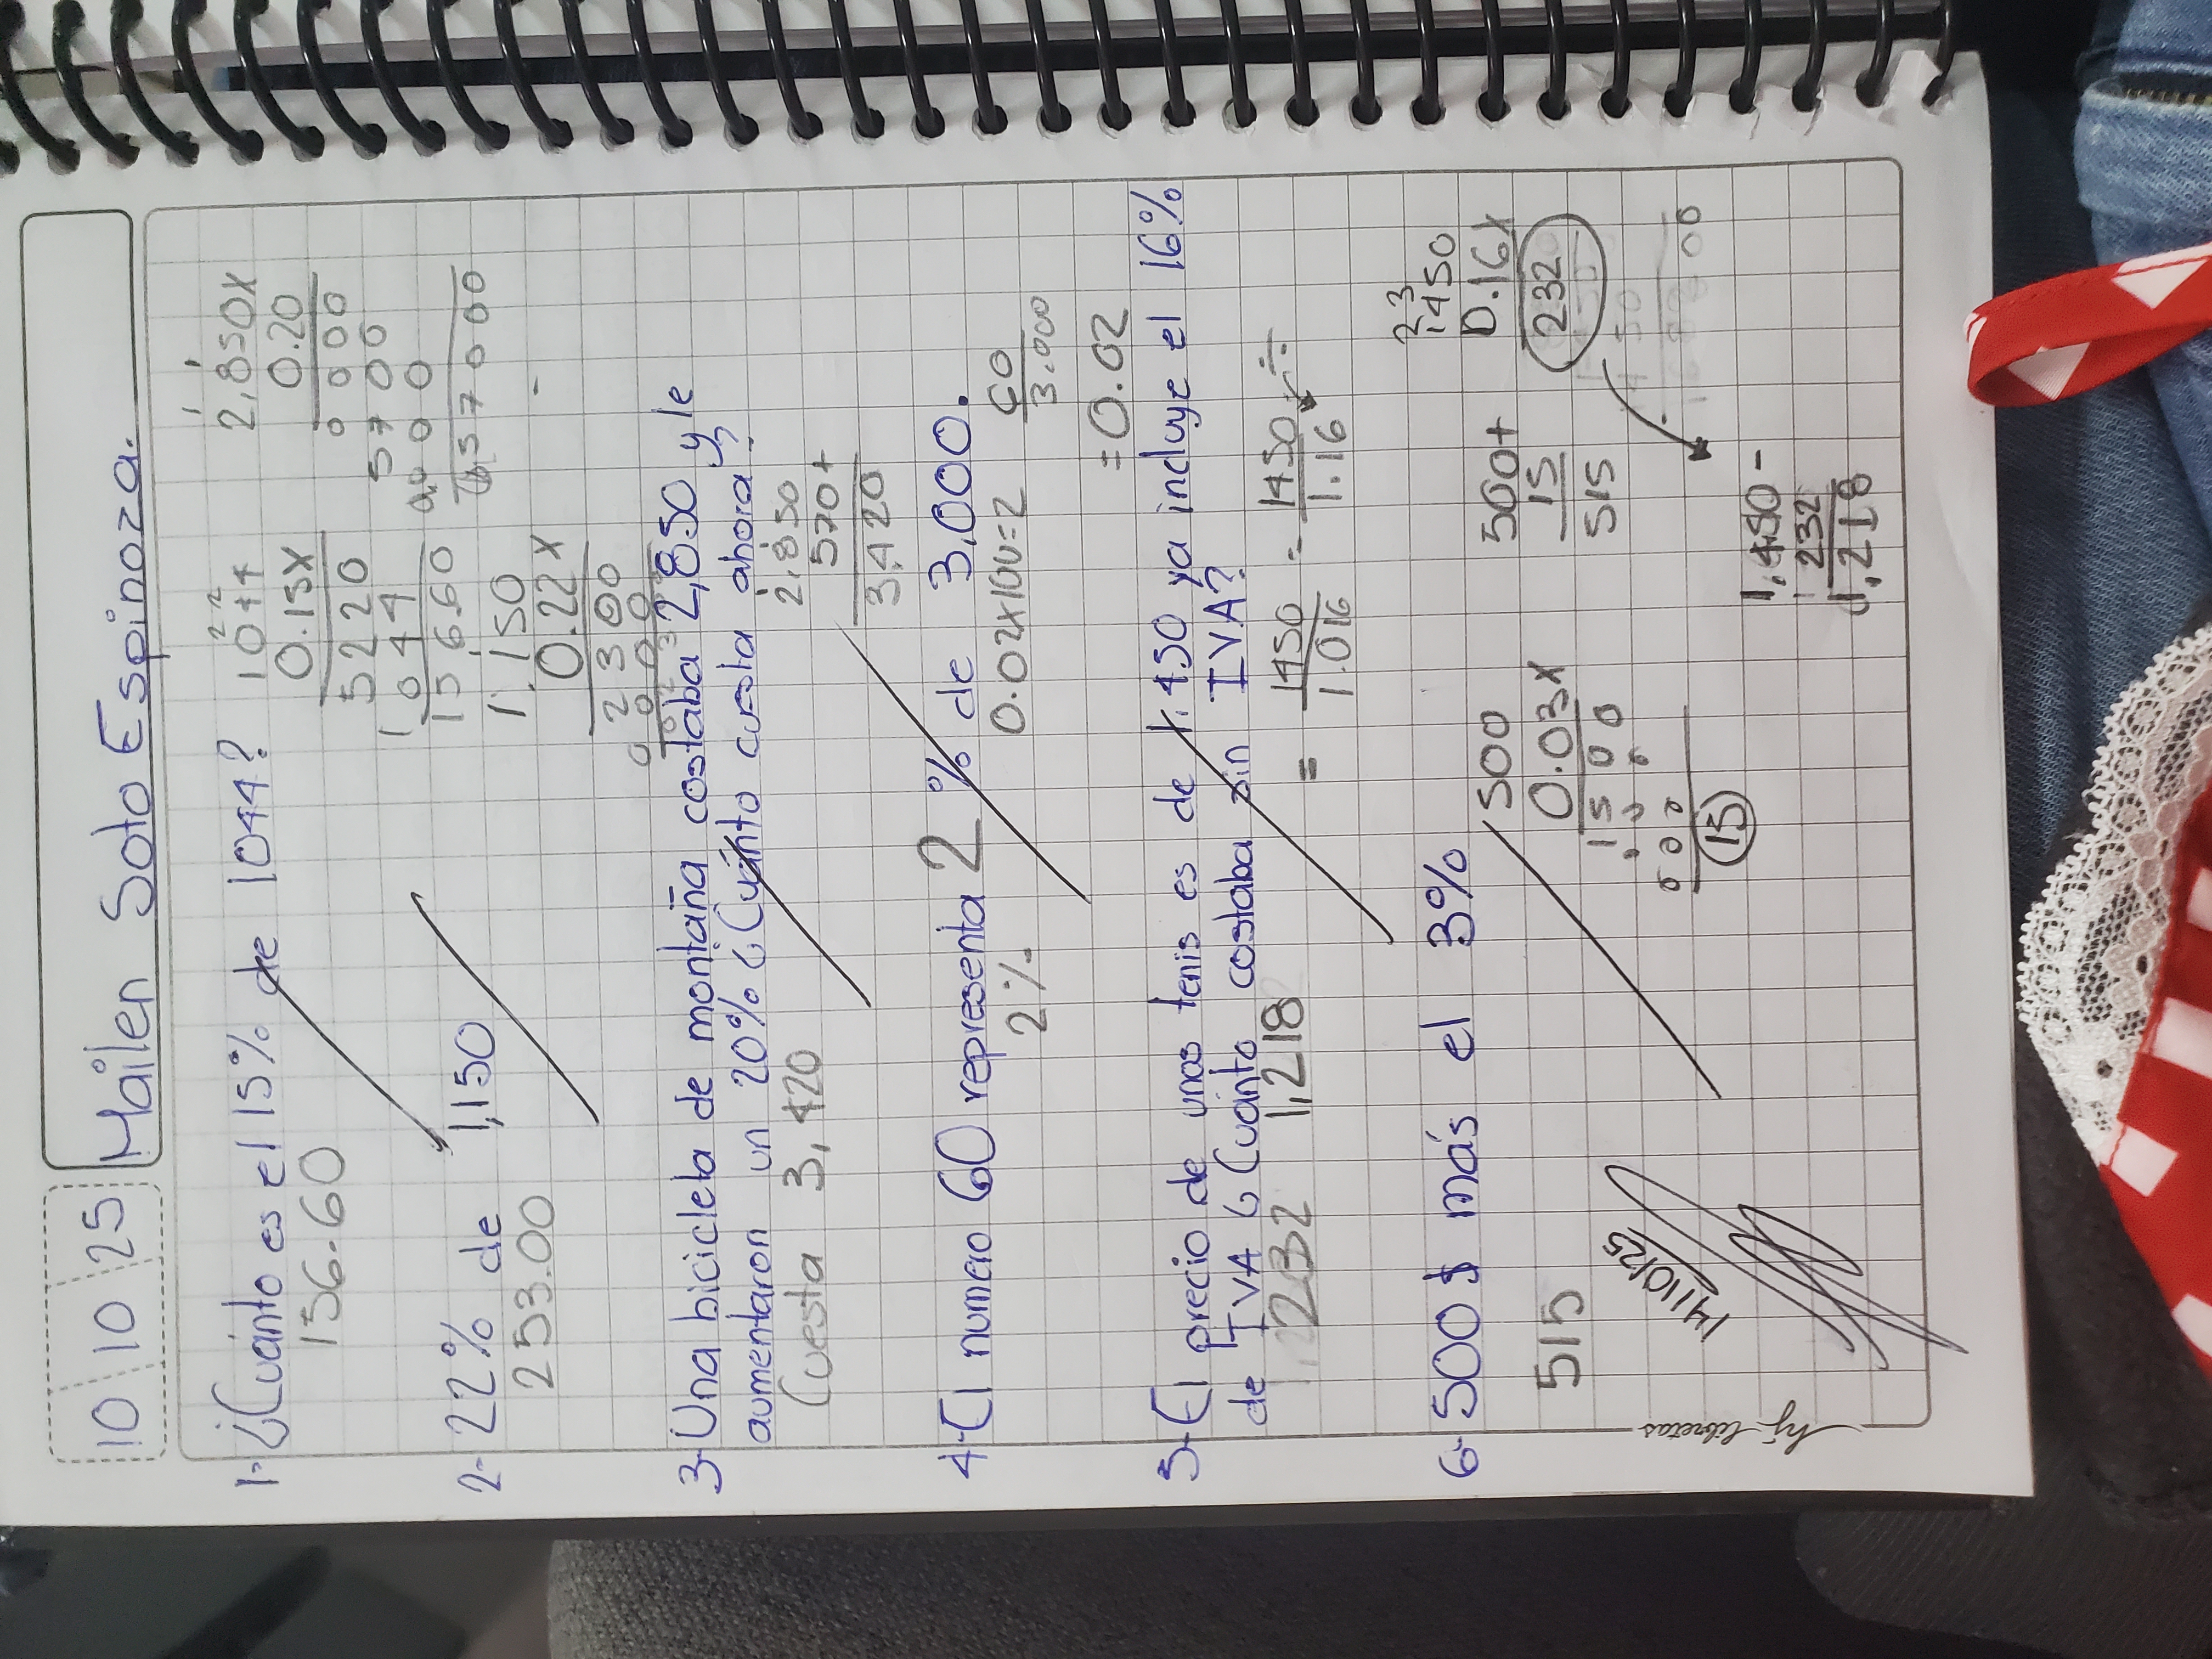 10 10 25
Mailen Soto Espinoza.
1- ¿Cuánto es el 15% de 1044?
156.60
1044
0.15x
5220
1044
156.60
2,850x
0.20
0000
5700
000
57000
2- 22% de 1,150
253.00
1,150
0.22x
2300
3- Una bicicleta de montaña costaba 2,850 y le
aumentaron un 20% ¿Cuánto cuesta ahora?
Cuesta 3,420
2,850
570+
3,420
4- El numero 60 representa 2 % de 3,000.
2%
0.02x100=2
60
3.000
=0.02
5- El precio de unos tenis es de 1,450 ya incluye el 16%
de IVA ¿Cuánto costaba sin IVA?
232
1,218
= 1450
1.016
1450 ÷
1.16
23
1450
0.16x
232
6- 500$ más el 3%
515
500
0.03x
1500
000
15
500+
15
515
1,450-
232
1,218
14/10/25
hj libretas